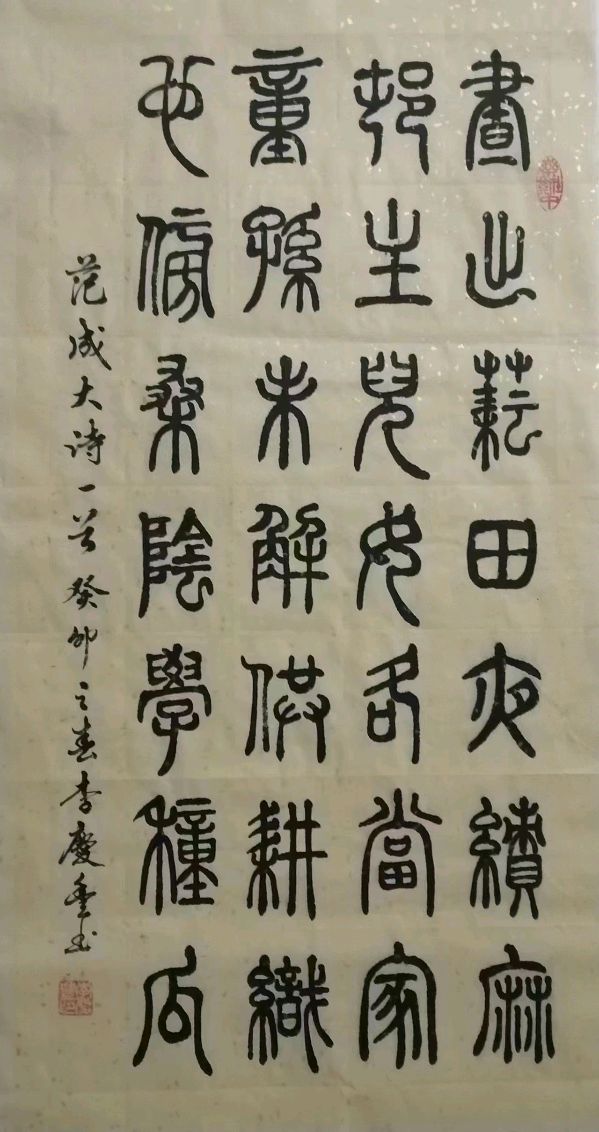 晝出耘田夜績麻
邨庄兒女各當家
童孫未解供耕織
也傍桑陰學種瓜
范成大诗一首 癸卯之春李慶书